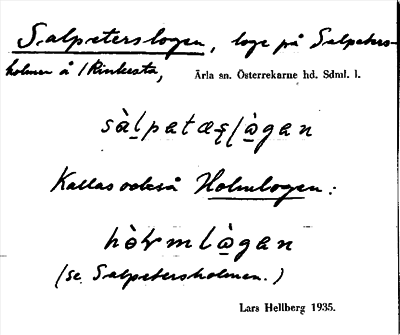 Salpeterslogen, loge på Salpeters-
holmen å /Rinkesta, Ärla sn. Österrekarne hd. Sdml. l.
sàlpatæʂlå̀gan
Kallas också Holmlogen:
hòɫmlå̀gan
(se Salpetersholmen.)
Lars Hellberg 1935.